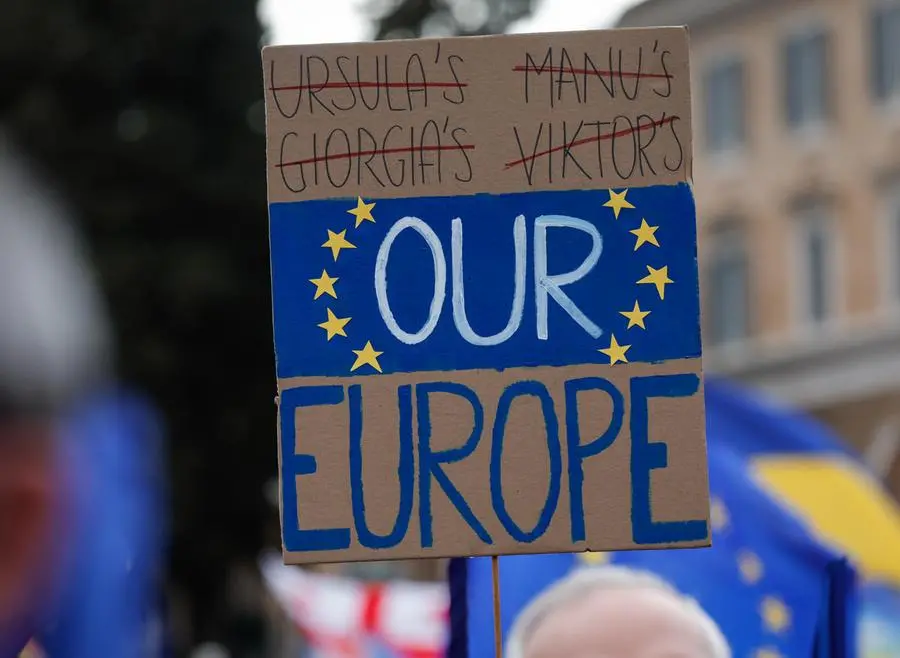 URSULA'S MANU'S
GIORGIA'S VIKTOR'S
OUR
EUROPE